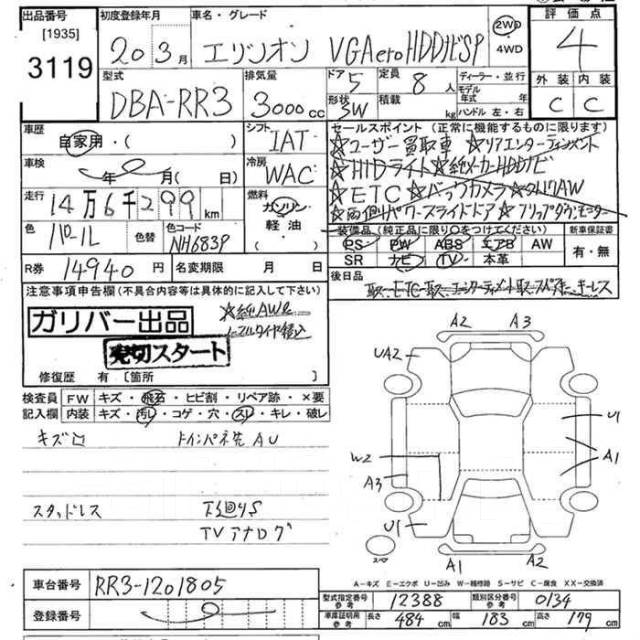 出品番号 初度登録年月 車名・グレード 2WD 評価点
[1935] 20年3月 エリシオン VGAeroHDDナビSP 4WD 4
3119 型式 排気量 ドア 定員 ディーラー・並行 外装 内装
DBA-RR3 3000cc 5 8人 モデル年式 年式 C C
形状 SW 積載 kg ハンドル 左・右
車歴 シフト セールスポイント (正常に機能するものに限ります)
自家用・( ) IAT ☆ユーザー買取車 ☆リアエンターテインメント
車検 年 月( ) 冷房 ☆HIDライト ☆純メーカーHDDナビ
WAC ☆ETC ☆バックカメラ ☆純17AW
走行 14万6千299km 燃料 ☆両側パワースライドドア ☆フリップダウンモニター
ガソリン 軽油 ( )
色 パール 色替 色コード NH683P 装備品 (純正品に限り○をつけてください) 新車保証書
PS PW ABS エアB AW 有・無
SR ナビ TV 本革
R券 14940円 名変期限 月 日 後日品
取、ETC取、エンターテイメント取、スペアキー、キーレス
注意事項申告欄(不具合内容等は具体的に記入して下さい)
ガリバー出品 ☆純AW&
ノーマルタイヤ積込
売切スタート
修復歴 有 [箇所 ]
検査員 FW キズ・飛石・ヒビ割・リペア跡・×要
記入欄 内装 キズ・汚レ・コゲ・穴・スレ・キレ・破レ
キズロ インパネ先AU
スタッドレス 下廻りS
TVアナログ
A2 A3
UA2
U1
W2
A1
A3
U1
スペア
A1 A2
A-キズ E-エクボ U-凹み W-補修跡 S-サビ C-腐食 XX-交換済
車台番号 RR3-1201805
型式指定番号 参考 12388 類別区分番号 参考 0134
登録番号
車車証明用 参考 長さ 484cm 幅 183cm 高さ 179cm